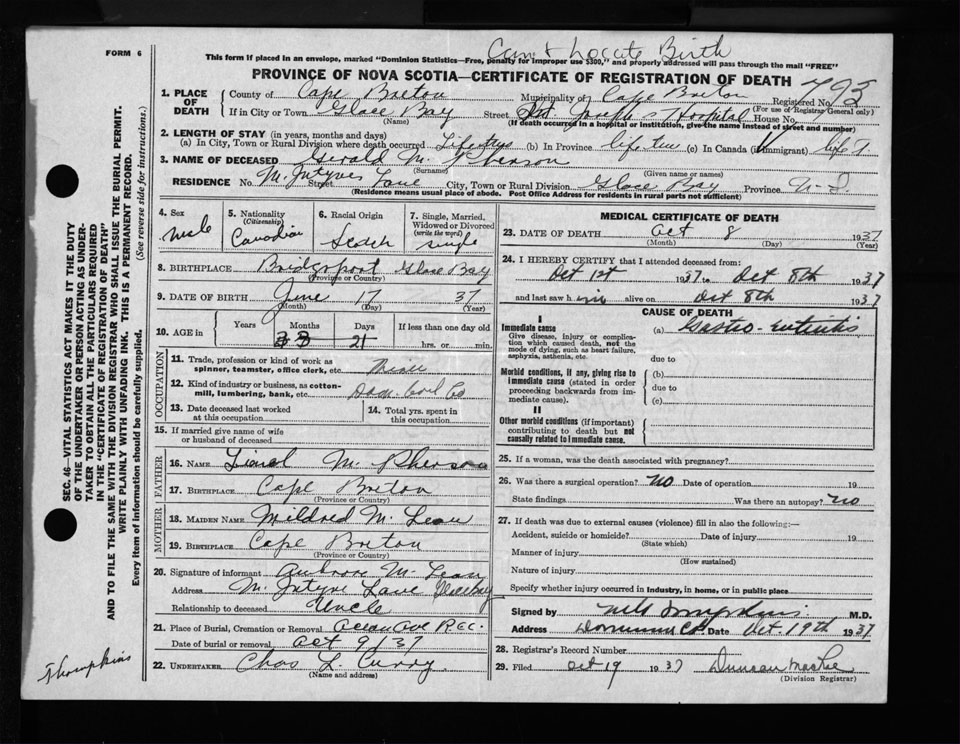 Can't Locate Birth
FORM 6
This form if placed in an envelope, marked "Dominion Statistics—Free, penalty for improper use $300," and properly addressed will pass through the mail "FREE"
PROVINCE OF NOVA SCOTIA—CERTIFICATE OF REGISTRATION OF DEATH
1. PLACE OF DEATH County of Cape Breton Municipality of Cape Breton Registered No. 793
(For use of Registrar General only)
If in City or Town Glace Bay Street St Joseph's Hospital House No.
(Name) (If death occurred in a hospital or institution, give the name instead of street and number)
2. LENGTH OF STAY (in years, months and days)
(a) In City, Town or Rural Division where death occurred Life (b) In Province life time (c) In Canada (if immigrant) life T.
3. NAME OF DECEASED Gerald McPherson
(Surname) (Given name or names)
RESIDENCE No. McIntyres Street Lane City, Town or Rural Division Glace Bay Province N-S
(Residence means usual place of abode. Post Office Address for residents in rural parts not sufficient)
4. Sex Male
5. Nationality (Citizenship) Canadian
6. Racial Origin Scotch
7. Single, Married, Widowed or Divorced (write the word) Single
8. BIRTHPLACE Bridgeport Glace Bay
(Province or Country)
9. DATE OF BIRTH June 17 37
(Month) (Day) (Year)
10. AGE in Years Months Days If less than one day old
3 21 hrs. or min.
OCCUPATION
11. Trade, profession or kind of work as spinner, teamster, office clerk, etc.
12. Kind of industry or business, as cotton-mill, lumbering, bank, etc. Dom. Coal Co
13. Date deceased last worked at this occupation
14. Total yrs. spent in this occupation
15. If married give name of wife or husband of deceased
FATHER
16. NAME Lionel McPherson
17. BIRTHPLACE Cape Breton
(Province or Country)
MOTHER
18. MAIDEN NAME Mildred McLean
19. BIRTHPLACE Cape Breton
(Province or Country)
20. Signature of informant McLean
Address McIntyre Lane Glace Bay
Relationship to deceased Uncle
21. Place of Burial, Cremation or Removal
Date of burial or removal Oct 9/37
22. UNDERTAKER Chas L. Curry
(Name and address)
MEDICAL CERTIFICATE OF DEATH
23. DATE OF DEATH Oct 8 1937
(Month) (Day) (Year)
24. I HEREBY CERTIFY that I attended deceased from:
Oct 1st 1937 to Oct 8th 1937
and last saw him alive on Oct 8th 1937
CAUSE OF DEATH
I
Immediate cause (a) Gastro-Enteritis
Give disease, injury or complication which caused death, not the mode of dying, such as heart failure, asphyxia, asthenia, etc.
due to
Morbid conditions, if any, giving rise to immediate cause (stated in order proceeding backwards from immediate cause).
(b)
due to
(c)
II
Other morbid conditions (if important) contributing to death but not causally related to immediate cause.
25. If a woman, was the death associated with pregnancy?
26. Was there a surgical operation? No Date of operation 19
State findings Was there an autopsy? No
27. If death was due to external causes (violence) fill in also the following:—
Accident, suicide or homicide? Date of injury 19
(State which)
Manner of injury
(How sustained)
Nature of injury
Specify whether injury occurred in industry, in home, or in public place
Signed by M.D.
Address Date Oct. 19th 1937
28. Registrar's Record Number
29. Filed Oct 19 1937 Duncan
(Division Registrar)
SEC. 46—VITAL STATISTICS ACT MAKES IT THE DUTY
OF THE UNDERTAKER OR PERSON ACTING AS UNDERTAKER TO OBTAIN ALL THE PARTICULARS REQUIRED
IN THE "CERTIFICATE OF REGISTRATION OF DEATH"
AND TO FILE THE SAME WITH THE DIVISION REGISTRAR WHO SHALL ISSUE THE BURIAL PERMIT.
WRITE PLAINLY WITH UNFADING INK. THIS IS A PERMANENT RECORD.
Every item of information should be carefully supplied. (See reverse side for instructions.)
Thompkins